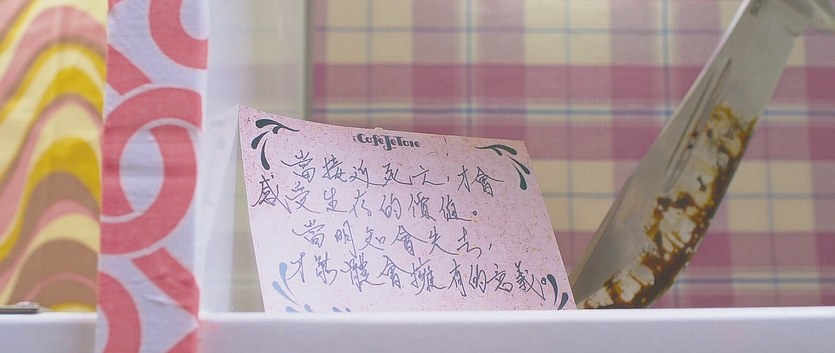 CafeJeTaie
當接近死亡,才會
感受生存的價值。
當明知會失去,
才能體會擁有的意義。